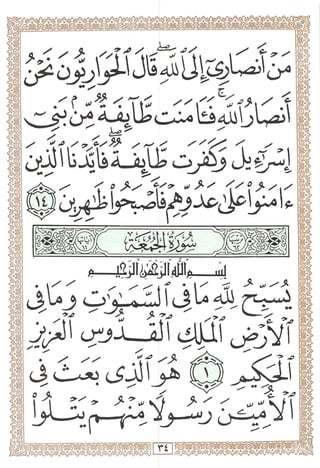 مَنْ أَنصَارِىٓ إِلَى ٱللَّهِۖ قَالَ ٱلْحَوَارِيُّونَ نَحْنُ
أَنصَارُ ٱللَّهِۖ فَـَٔامَنَت طَّآئِفَةٌ مِّنۢ بَنِىٓ
إِسْرَٰٓءِيلَ وَكَفَرَت طَّآئِفَةٌۖ فَأَيَّدْنَا ٱلَّذِينَ
ءَامَنُوا۟ عَلَىٰ عَدُوِّهِمْ فَأَصْبَحُوا۟ ظَٰهِرِينَ ١٤
سُورَةُ الجُمُعَةِ
بِسْمِ ٱللَّهِ ٱلرَّحْمَٰنِ ٱلرَّحِيمِ
يُسَبِّحُ لِلَّهِ مَا فِى ٱلسَّمَٰوَٰتِ وَمَا فِى
ٱلْأَرْضِ ٱلْمَلِكِ ٱلْقُدُّوسِ ٱلْعَزِيزِ
ٱلْحَكِيمِ ١ هُوَ ٱلَّذِى بَعَثَ فِى
ٱلْأُمِّيِّـۧنَ رَسُولًا مِّنْهُمْ يَتْلُوا۟
٣٤